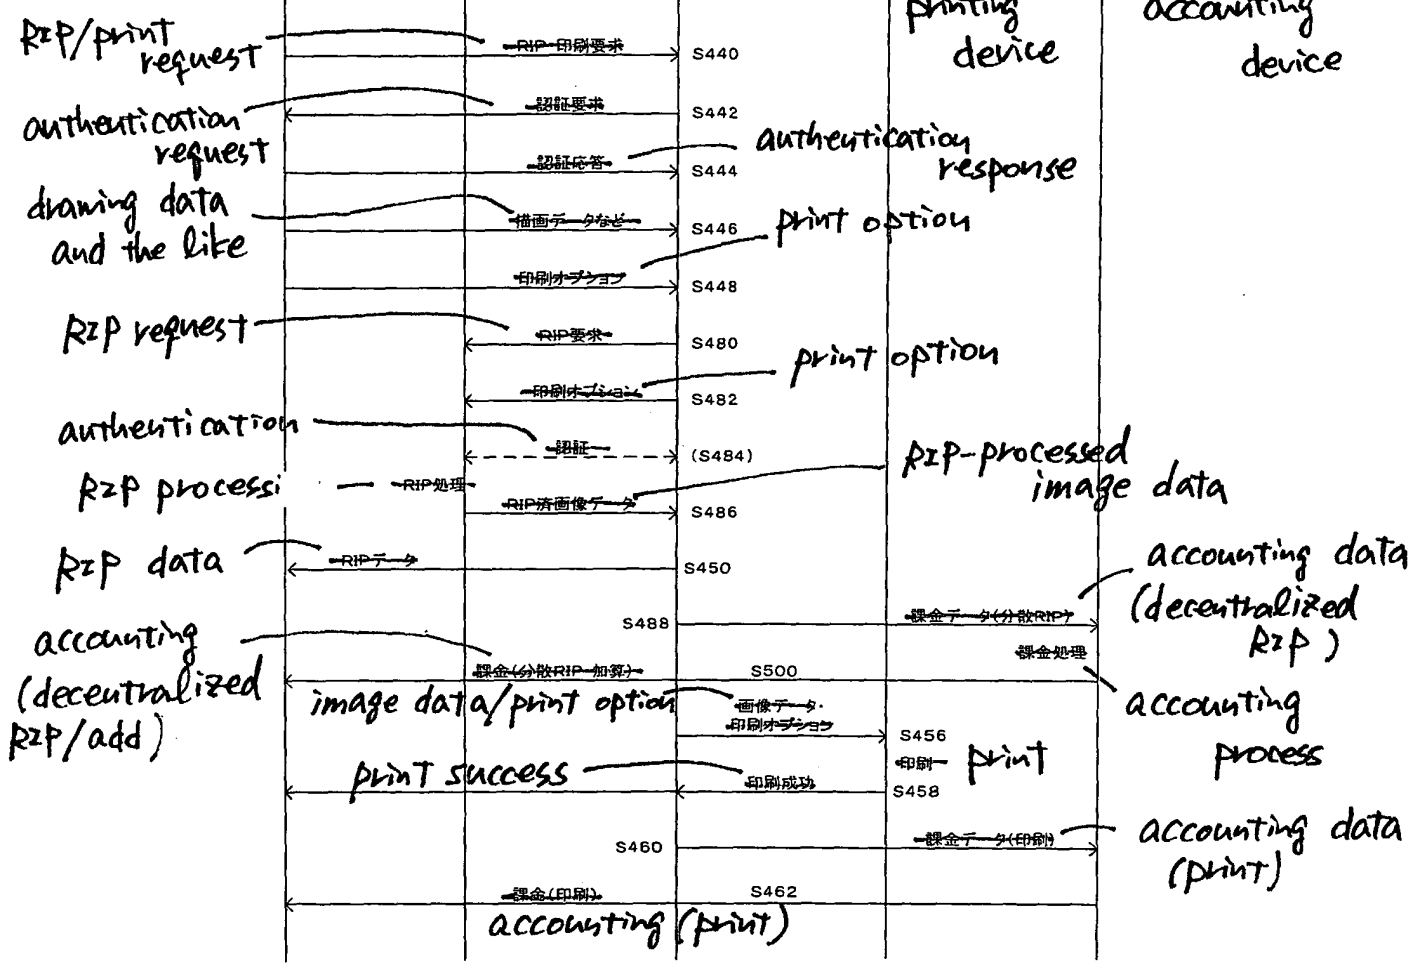 printing
device
accounting
device
RIP/print
request
RIP・印刷要求
S440
authentication
request
認証要求
S442
認証応答
authentication
response
S444
drawing data
and the like
描画データなど
S446
print option
印刷オプション
S448
RIP request
RIP要求
S480
print option
印刷オプション
S482
authentication
認証
(S484)
RIP processi
RIP処理
RIP-processed
image data
RIP済画像データ
S486
RIP data
RIPデータ
S450
accounting data
(decentralized
RIP)
課金データ(分散RIP)
S488
課金処理
accounting
process
accounting
(decentralized
RIP/add)
課金(分散RIP・加算)
S500
image data/print option
画像データ・
印刷オプション
S456
印刷
print
print success
印刷成功
S458
S460
課金データ(印刷)
accounting data
(print)
課金(印刷)
S462
accounting (print)